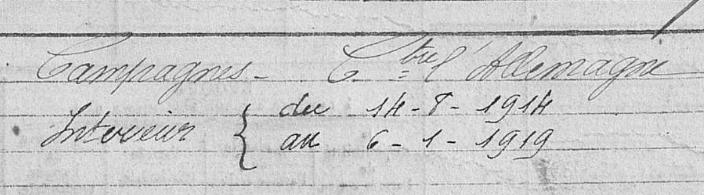 Campagnes - Ctre l'Allemagne
Intérieur { du 14-8-1914
au 6-1-1919